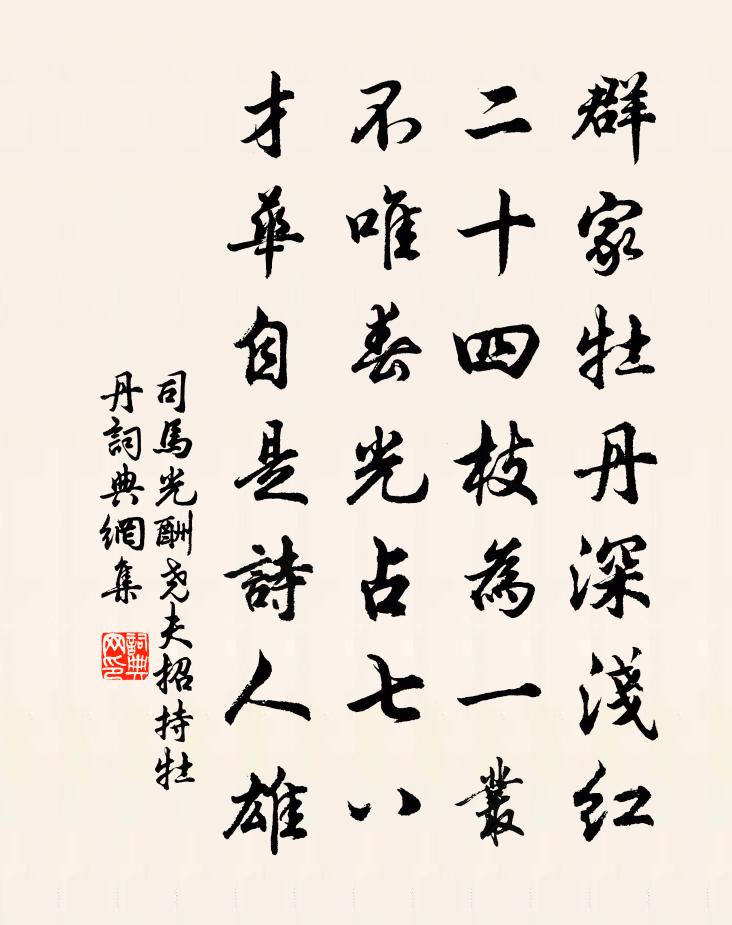 群家牡丹深淺紅
二十四枝為一叢
不唯春光占七八
才華自是詩人雄
司馬光酬尧夫招持牡
丹詞典網集
詞典
网印